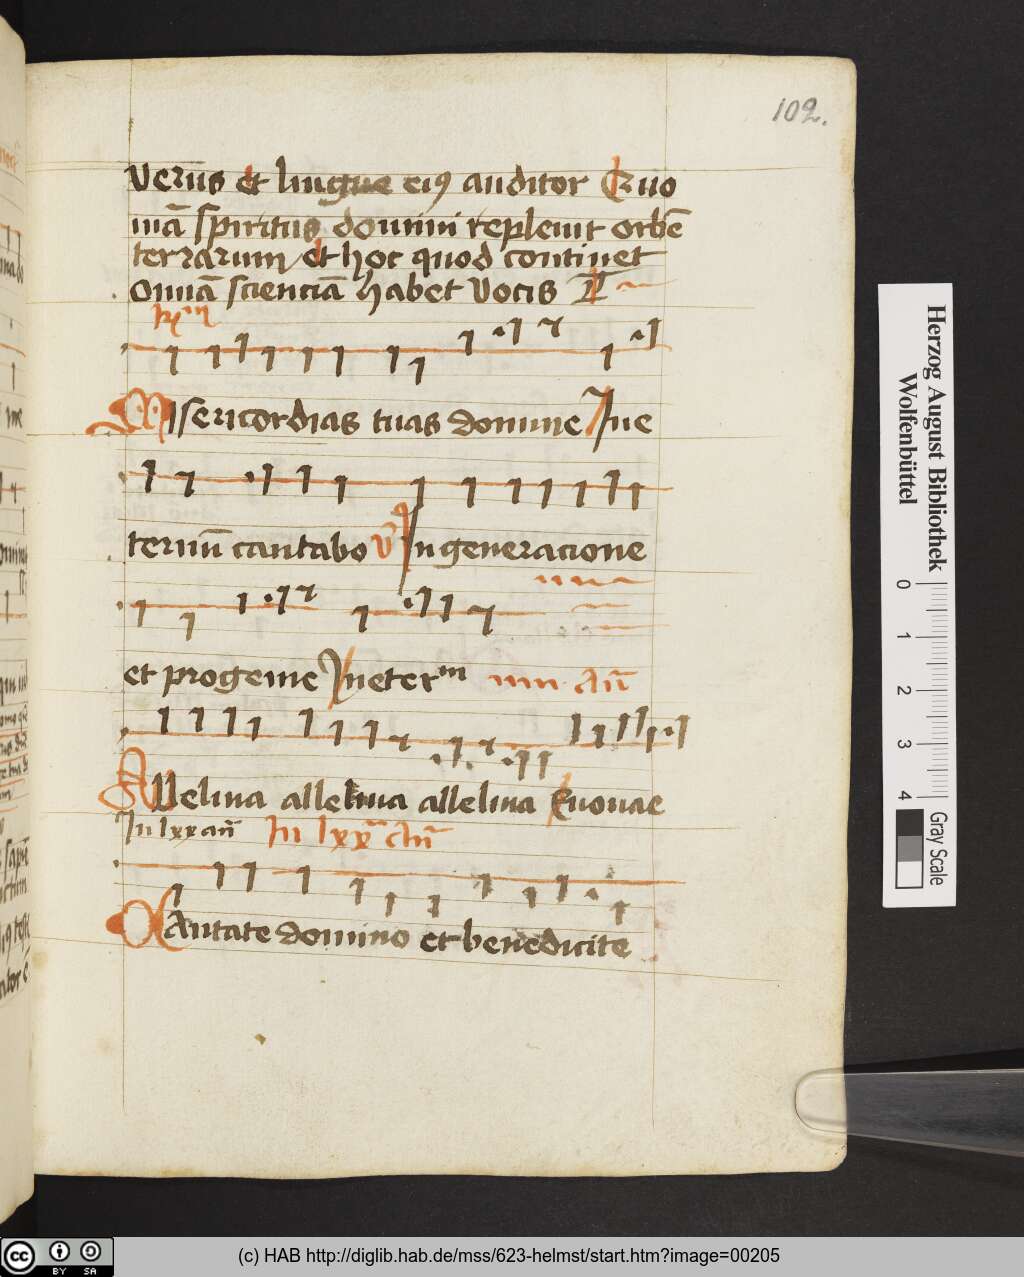 102.
verus et lingue eiꝯ auditor Quo
niā spiritus domini repleuit orbē
terrarum et hoc quod continet
omniā scienciā habet vocis
Misericordias tuas domine Ine
ternū cantabo V In generacione
et progenie In eterm
an̄
Alleluia alleluia alleluia Euouae
In lxx an̄ In lxx an̄
Cantate domino et benedicite
Herzog August Bibliothek
Wolfenbüttel
0 1 2 3 4
Gray Scale
cc BY SA
(c) HAB http://diglib.hab.de/mss/623-helmst/start.htm?image=00205